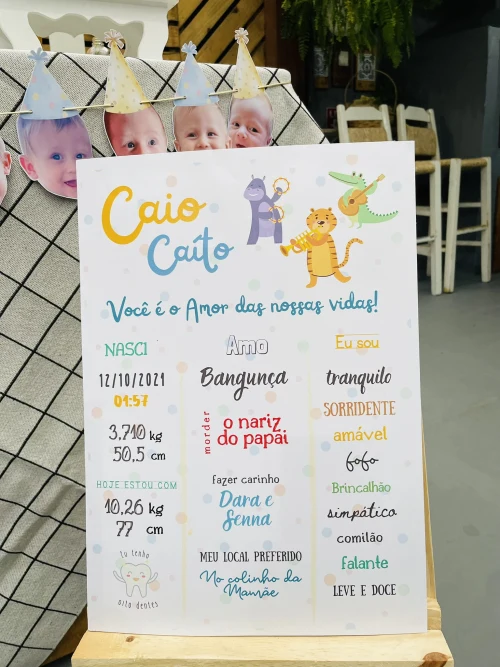 Caio
Caíto
Você é o Amor das nossas vidas!
NASCI
12/10/2021
01:57
3,710 kg
50,5 cm
HOJE ESTOU COM
10,26 kg
77 cm
tu tenho
oito dentes
Amo
Bangunça
morder
o nariz
do papai
fazer carinho
Dara e
Senna
MEU LOCAL PREFERIDO
No colinho da
Mamãe
Eu sou
tranquilo
SORRIDENTE
amável
fofo
Brincalhão
simpático
comilão
falante
LEVE E DOCE